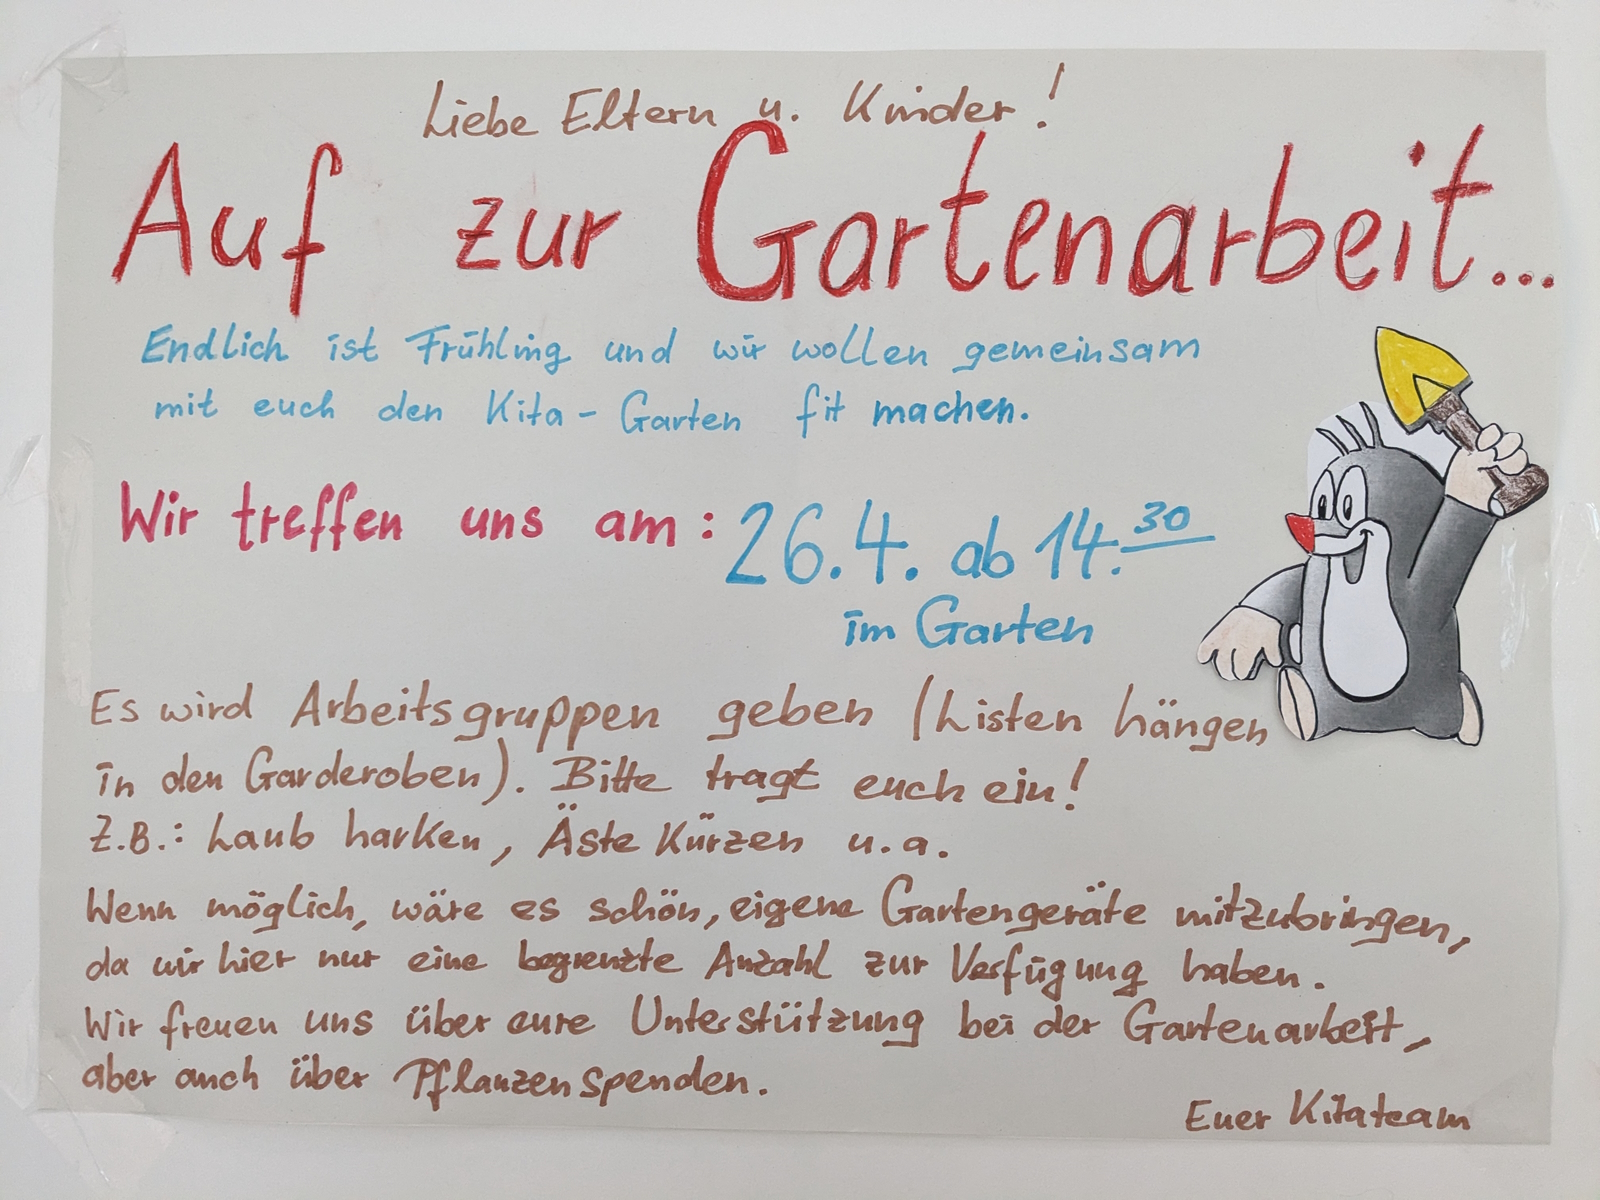 Liebe Eltern u. Kinder!
Auf zur Gartenarbeit...
Endlich ist Frühling und wir wollen gemeinsam
mit euch den Kita-Garten fit machen.
Wir treffen uns am: 26.4. ab 14.30
im Garten
Es wird Arbeitsgruppen geben (Listen hängen
in den Garderoben). Bitte tragt euch ein!
Z.B.: Laub harken, Äste Kürzen u.a.
Wenn möglich, wäre es schön, eigene Gartengeräte mitzubringen,
da wir hier nur eine begrenzte Anzahl zur Verfügung haben.
Wir freuen uns über eure Unterstützung bei der Gartenarbeit,
aber auch über Pflanzenspenden.
Euer Kitateam